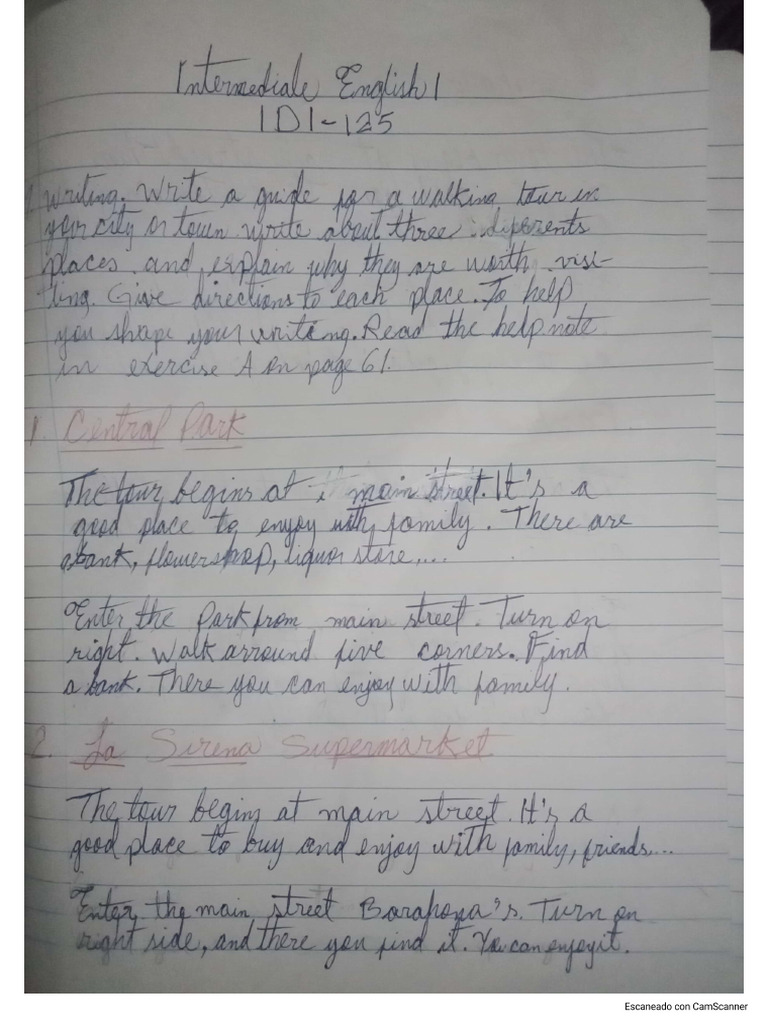 Intermediale English 1
IDI-125
Writing. Write a guide for a walking tour in
your city or town write about three diferents
places and explain why they are worth visi-
ting. Give directions to each place. To help
you shape your writing. Read the help note
in exercise A on page 61.
1. Central Park
The tour begins at main street. It's a
good place to enjoy with family. There are
a bank, flowershop, liquor store,...
Enter the Park from main street. Turn on
right. Walk arround five corners. Find
a bank. There you can enjoy with family.
2. La Sirena Supermarket
The tour begins at main street. It's a
good place to buy and enjoy with family, friends...
Enter the main street Barahona's. Turn on
right side, and there you find it. You can enjoy it.
Escaneado con CamScanner